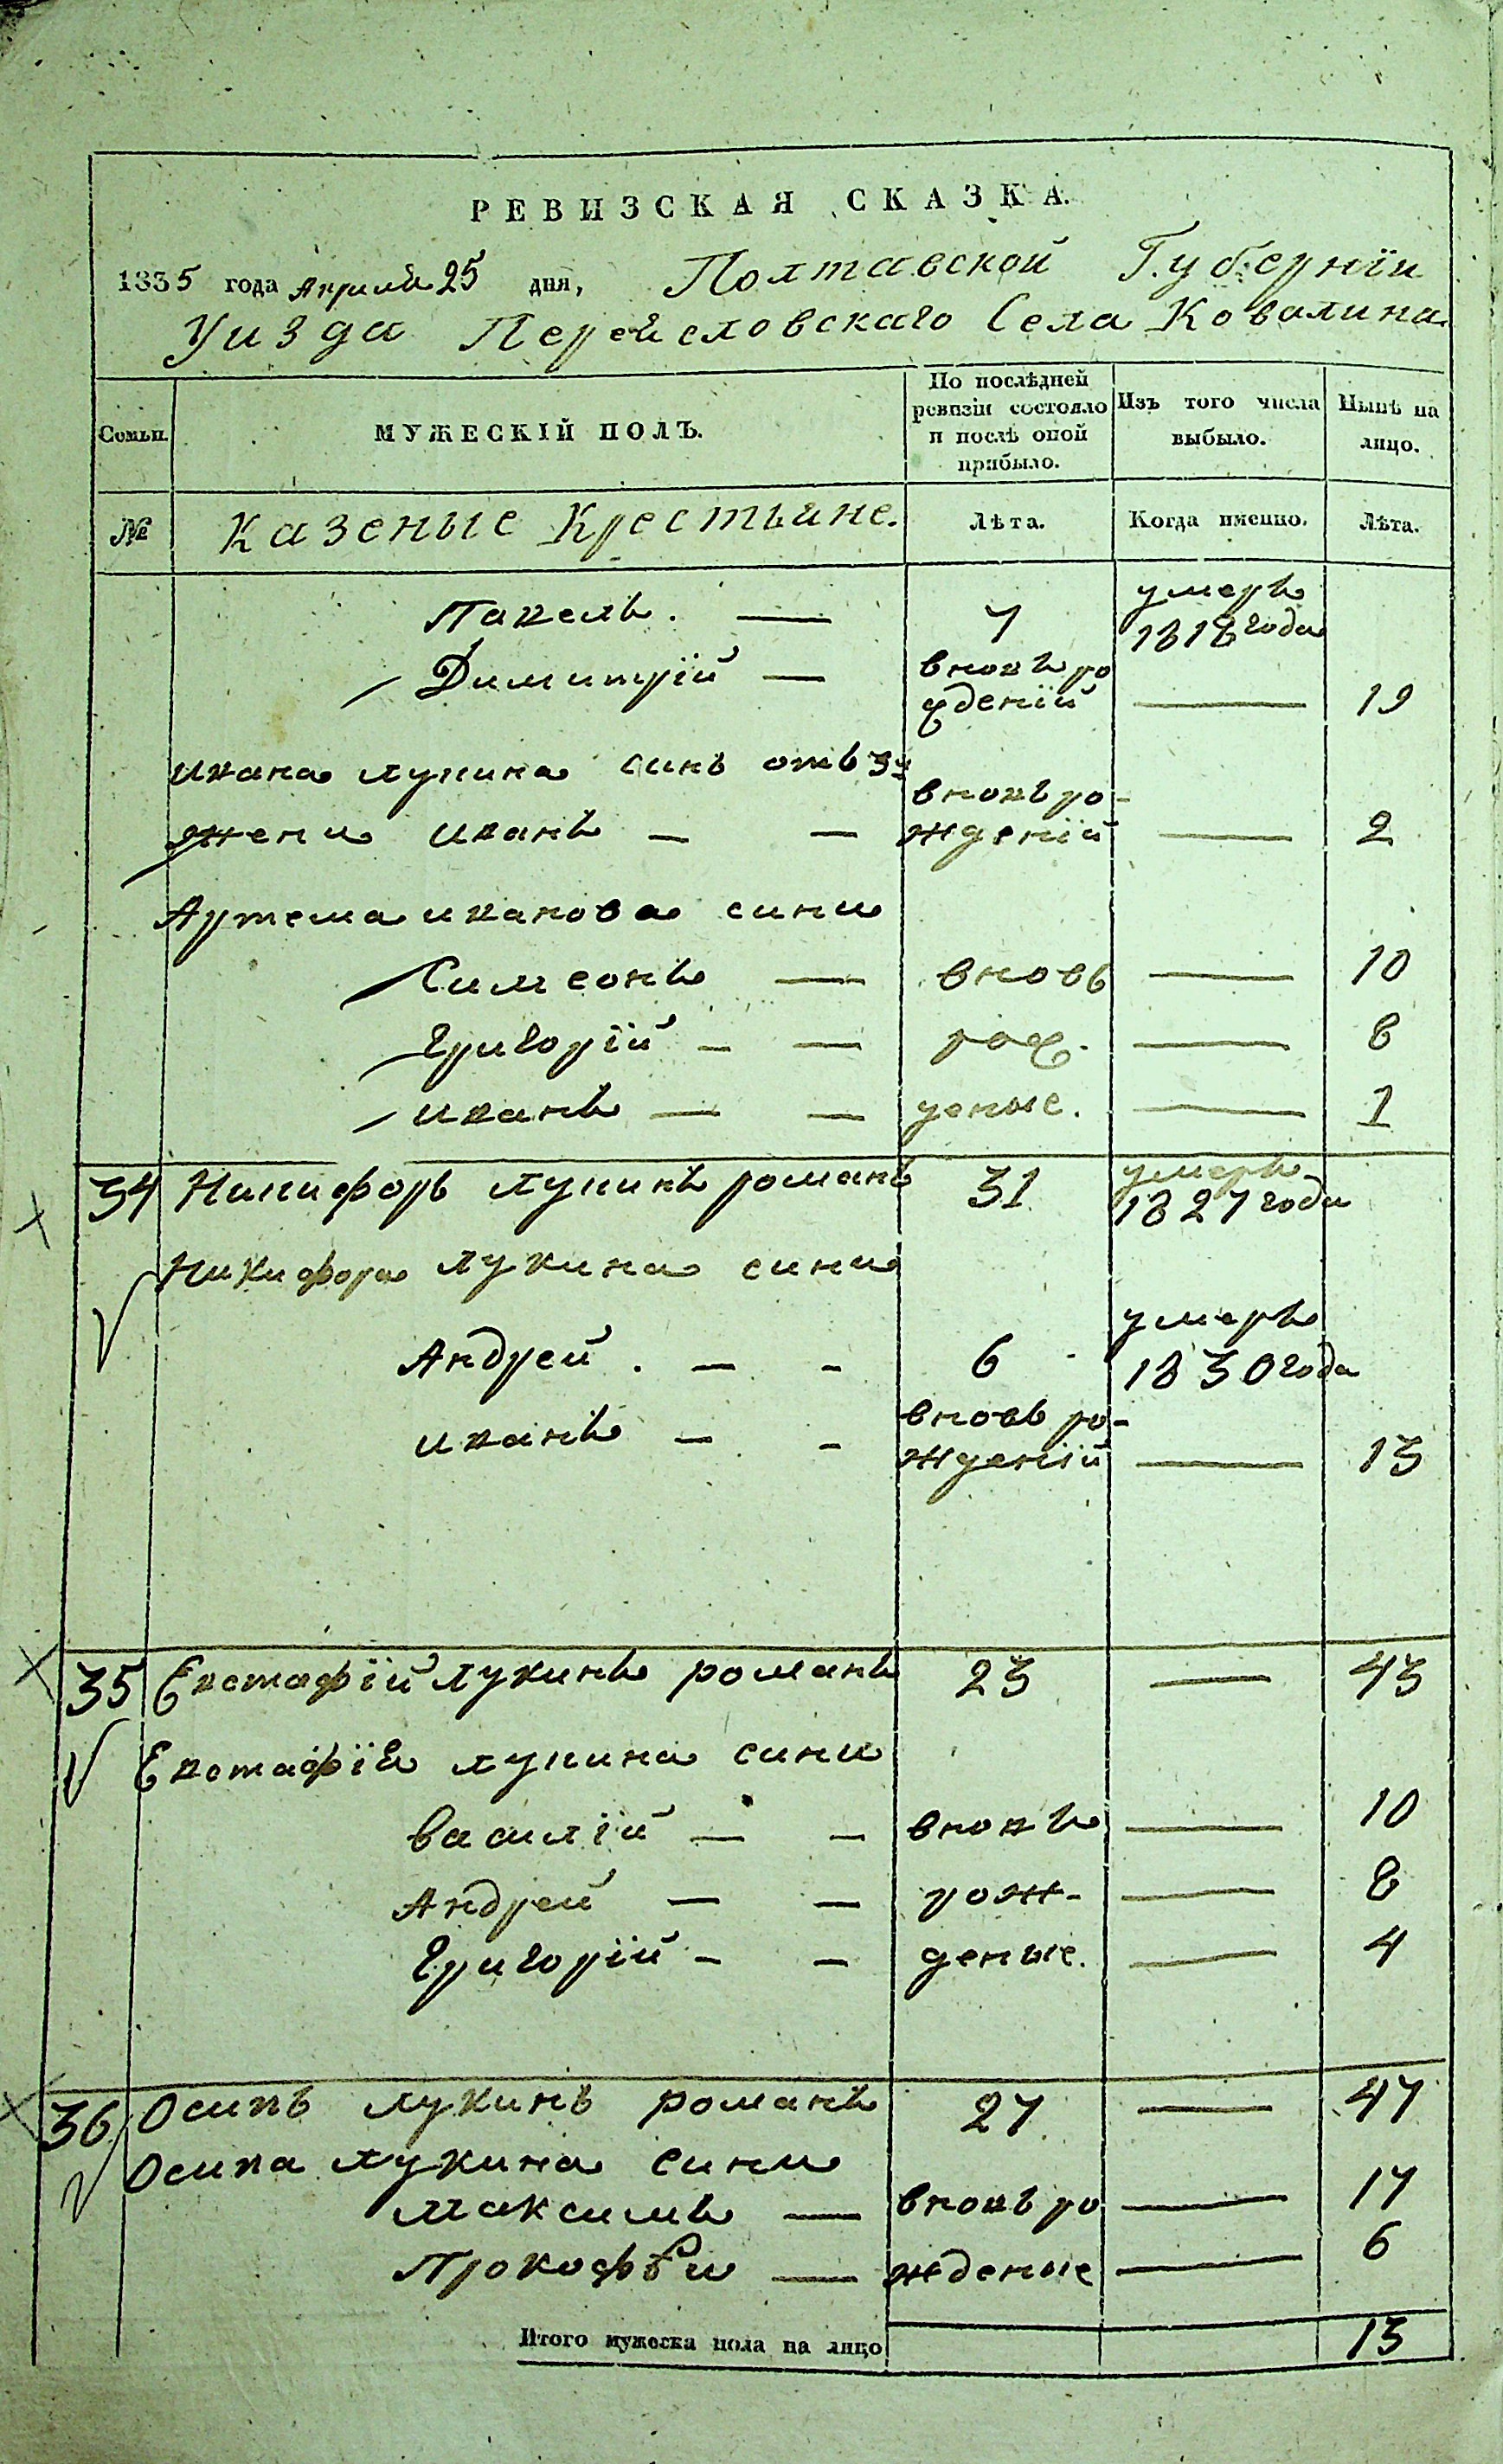 РЕВИЗСКАЯ СКАЗКА.
1835 года Априля 25 дня, Полтавской Губернїи
Уизда Перейсловскаго Села Ковалина
Семьи. МУЖЕСКІЙ ПОЛЪ. По послѣдней ревизіи состояло и послѣ оной прибыло. Изъ того числа выбыло. Нынѣ на лицо.
№ Казеные Крестьяне. Лѣта. Когда именно. Лѣта.
Павелъ. — 7 умеръ 1818 года
Димитрїй — вновъ рожденїй — 19
Ивана лукина синъ отъ 3й
жени иванъ — — вновъ рожденїй — 2
Артема иванова сини
Симеонъ — вновь — 10
Григорїй — — рож- — 8
иванъ — — деные. — 1
34 Никифоръ лукинъ романъ 31 умеръ 1827 года
Никифора лукина сини
Андрей. — - 6 умеръ 1830 года
иванъ — - вновь рожденїй — 13
35 Евстафїй лукинъ романъ 23 — 43
Евстафїя лукина сини
василїй — — вновъ — 10
Андрей — — рож- — 8
Григорїй — — деные. — 4
36 Осипъ лукинъ романъ 27 — 47
Осипа лукина сини
максимъ — вновъ ро — 17
Прокофѣи — ждение — 6
Итого мужеска пола на лицо 13